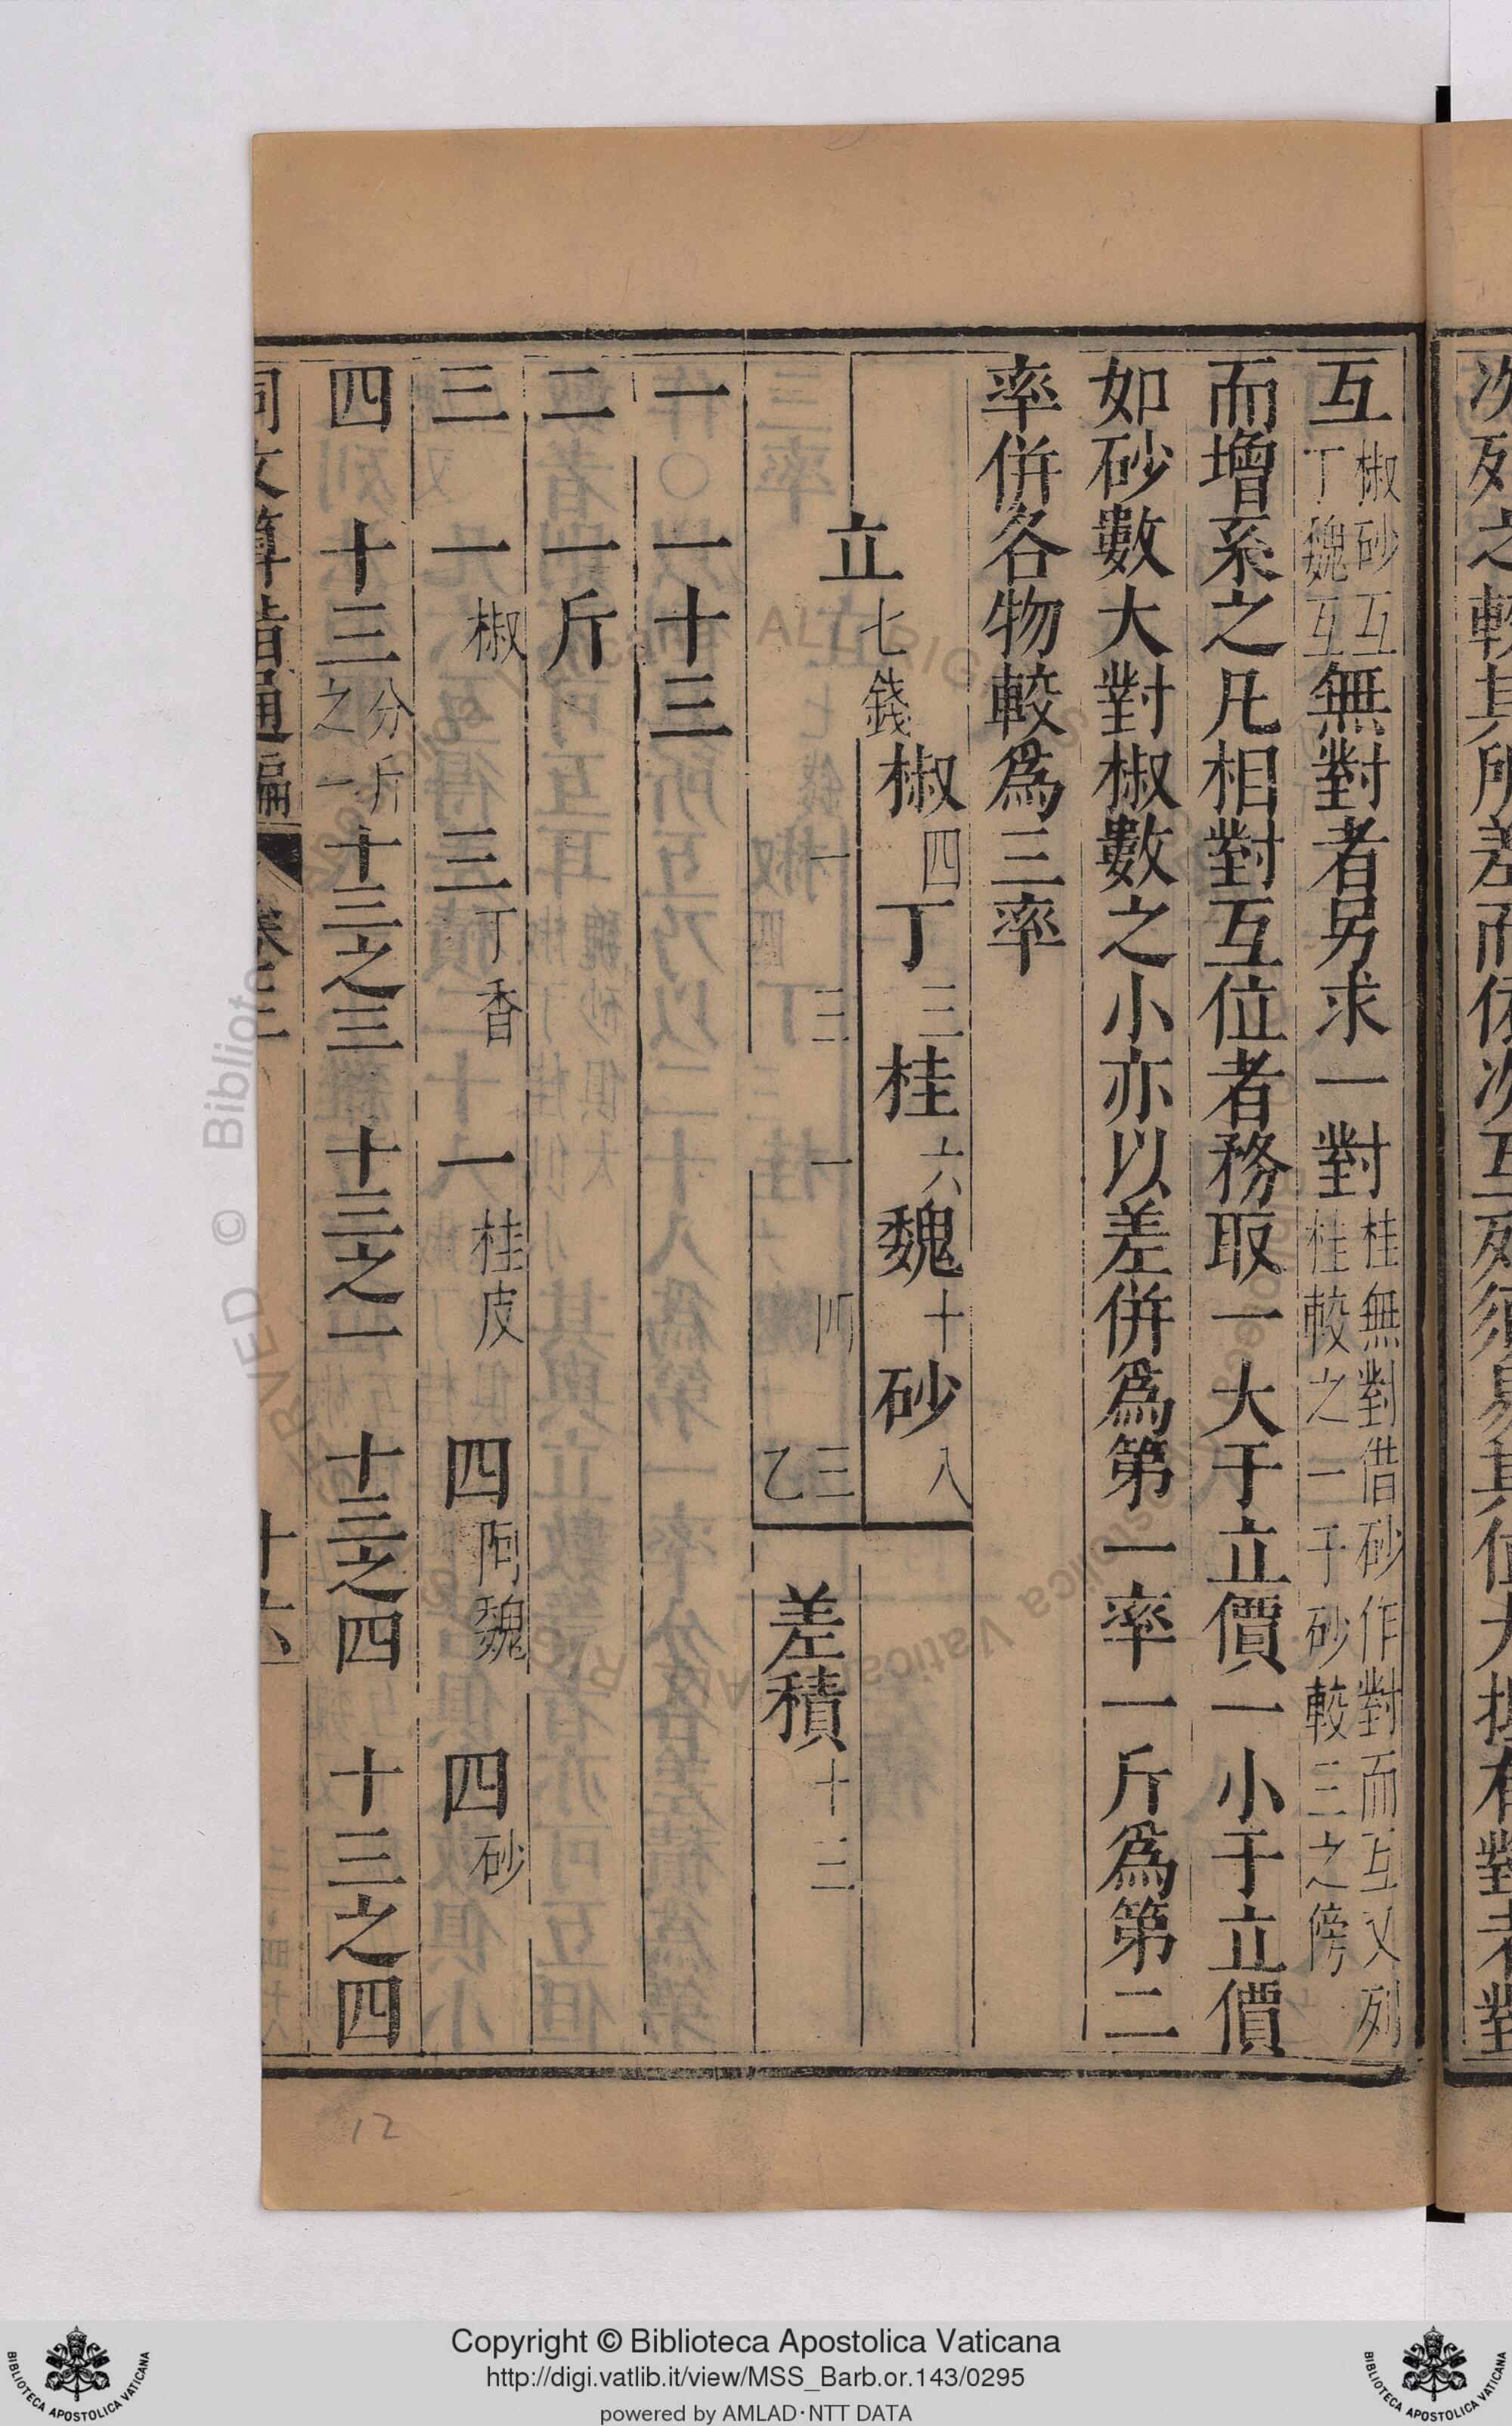 次列之較其所差而依次互列須易其位大抵有對者對
互椒砂互丁魏互無對者另求一對桂無對借砂作對而互又列桂較之一于砂較三之傍
而增系之凡相對互位者務取一大于立價一小于立價
如砂數大對椒數之小亦以差併爲第一率一斤爲第二
率併各物較爲三率
椒四丁三桂六魏十砂八
立七錢
一 三 一 四 三乙
差積十三
一 一十三
二 一斤
三 一椒 三丁香 一桂皮 四阿魏 四砂
四 十三分斤之一 十三之三 十三之一 十三之四 十三之四
同文算指通編 卷二 十六
12
Copyright © Biblioteca Apostolica Vaticana
http://digi.vatlib.it/view/MSS_Barb.or.143/0295
powered by AMLAD·NTT DATA
BIBLIOTECA APOSTOLICA VATICANA
BIBLIOTECA APOSTOLICA VATICANA